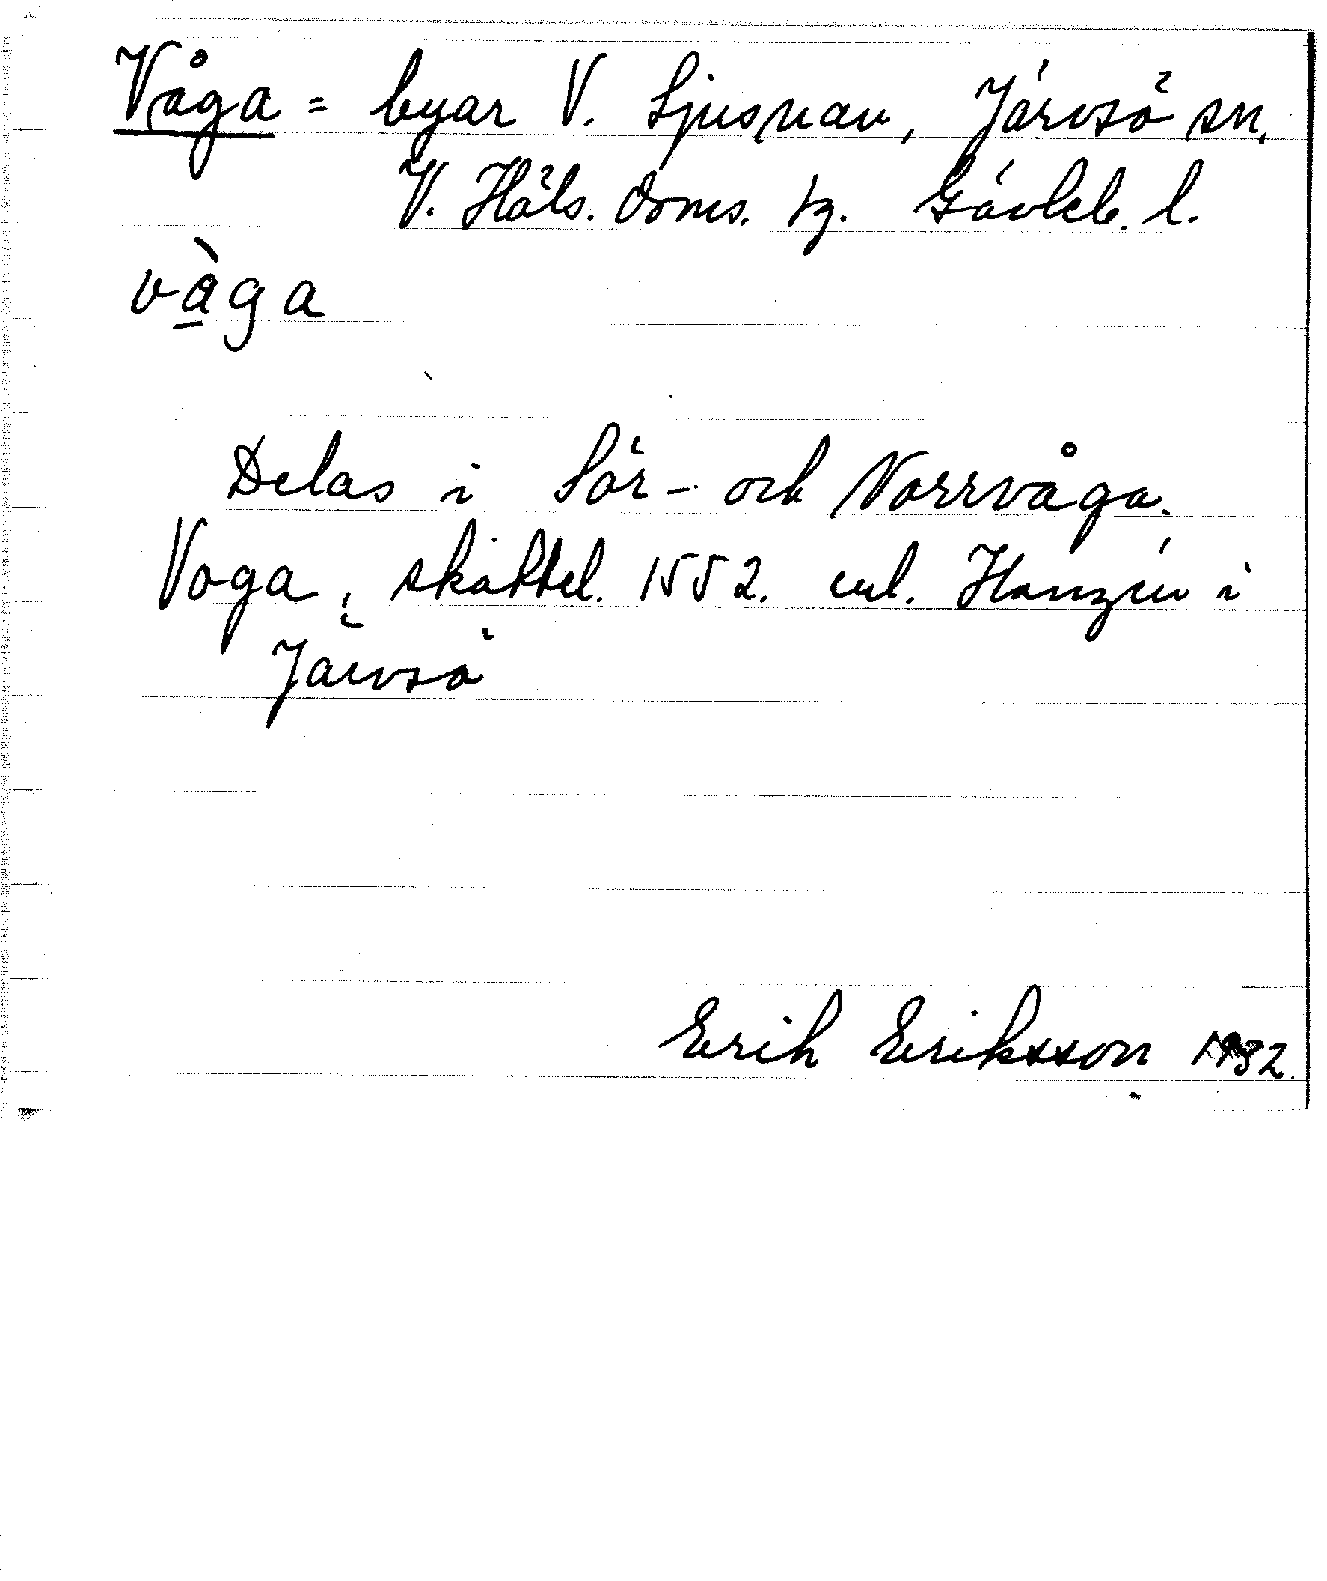 Våga = byar V. Ljusnan, Järvsö sn,
V. Häls. doms. tg. Gävleb. l.
våga
Delas i Sör- och Norrvåga.
Voga, skattel. 1552. enl. Hanzén i
Järvsö
Erik Eriksson 1932.